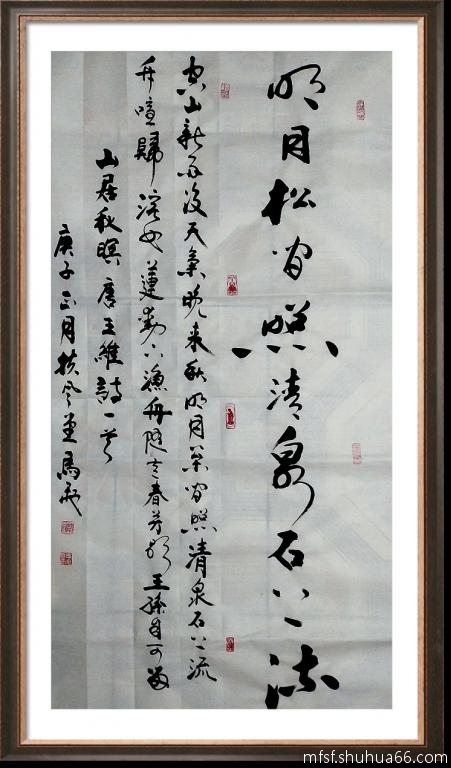 明月松间照清泉石上流
空山新雨后天气晚来秋明月松间照清泉石上流
竹喧归浣女莲动下渔舟随意春芳歇王孙自可留
山居秋暝唐王维诗一首
庚子正月扶风堂马
mfsf.shuhua66.com